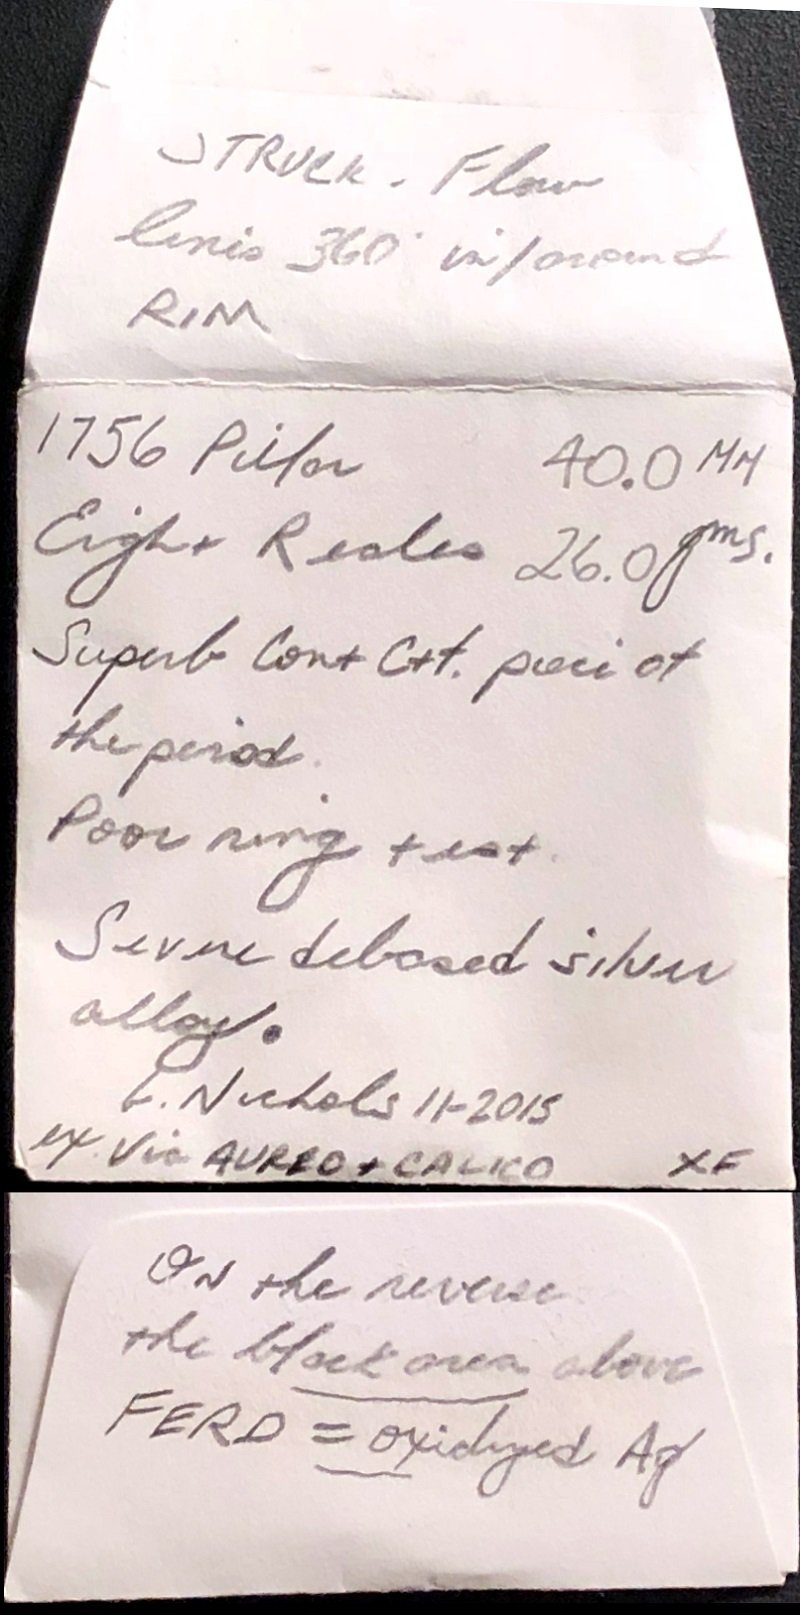 STRUCK. Flow
lines 360° in/around
RIM
1756 Pillar 40.0 MM
Eight Reales 26.0 gms.
Superb Cont Cft. piece of
the period.
Poor ring test.
Severe debased silver
alloy.
L. Nichols 11-2015
ex. Via AUREO + CALICO XF
ON the reverse
the black area above
FERD = oxidyzed Ag